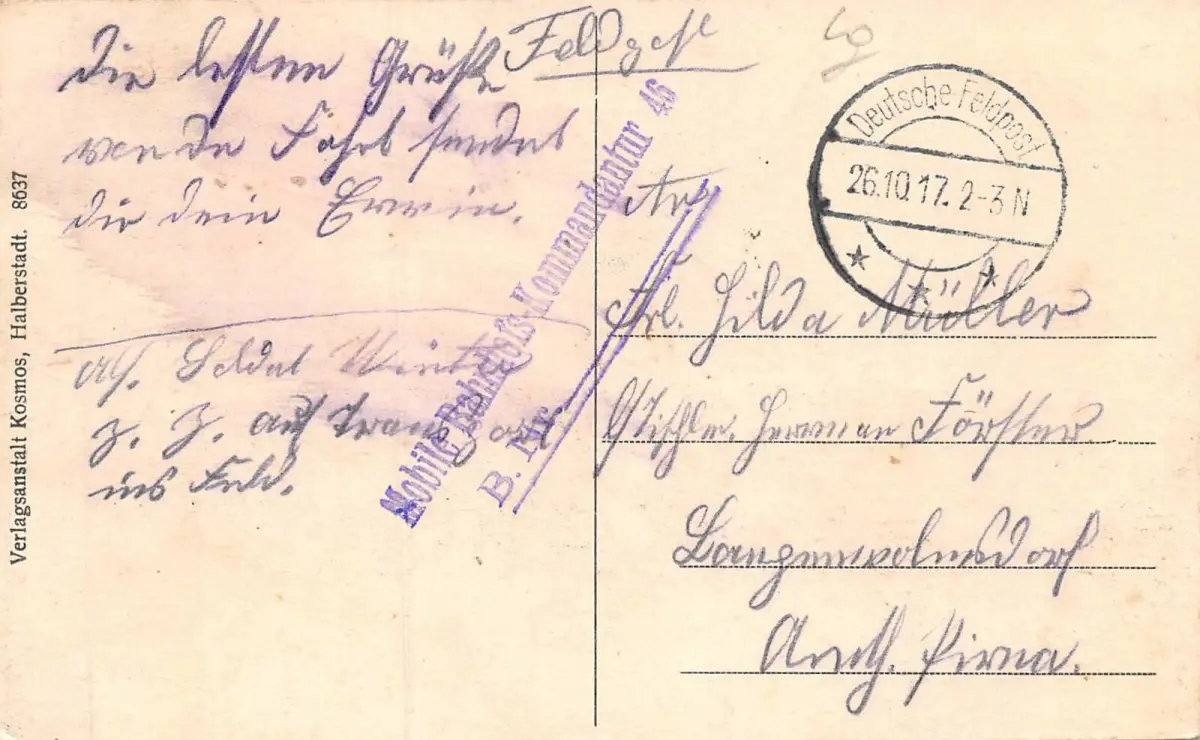 Feldpost
Die besten Grüße
von der Fahrt sendet
dir dein Erwin.
Abs. Soldat
z. Z. auf Transport
ins Feld.
Mobile Bahnhofs-Kommandantur 46
B. Nr.
Deutsche Feldpost
26.10.17. 2-3 N
An
Frl. Hilda Müller
Herman Förster
Langenwolmsdorf
Amth. Pirna.
Verlagsanstalt Kosmos, Halberstadt. 8637